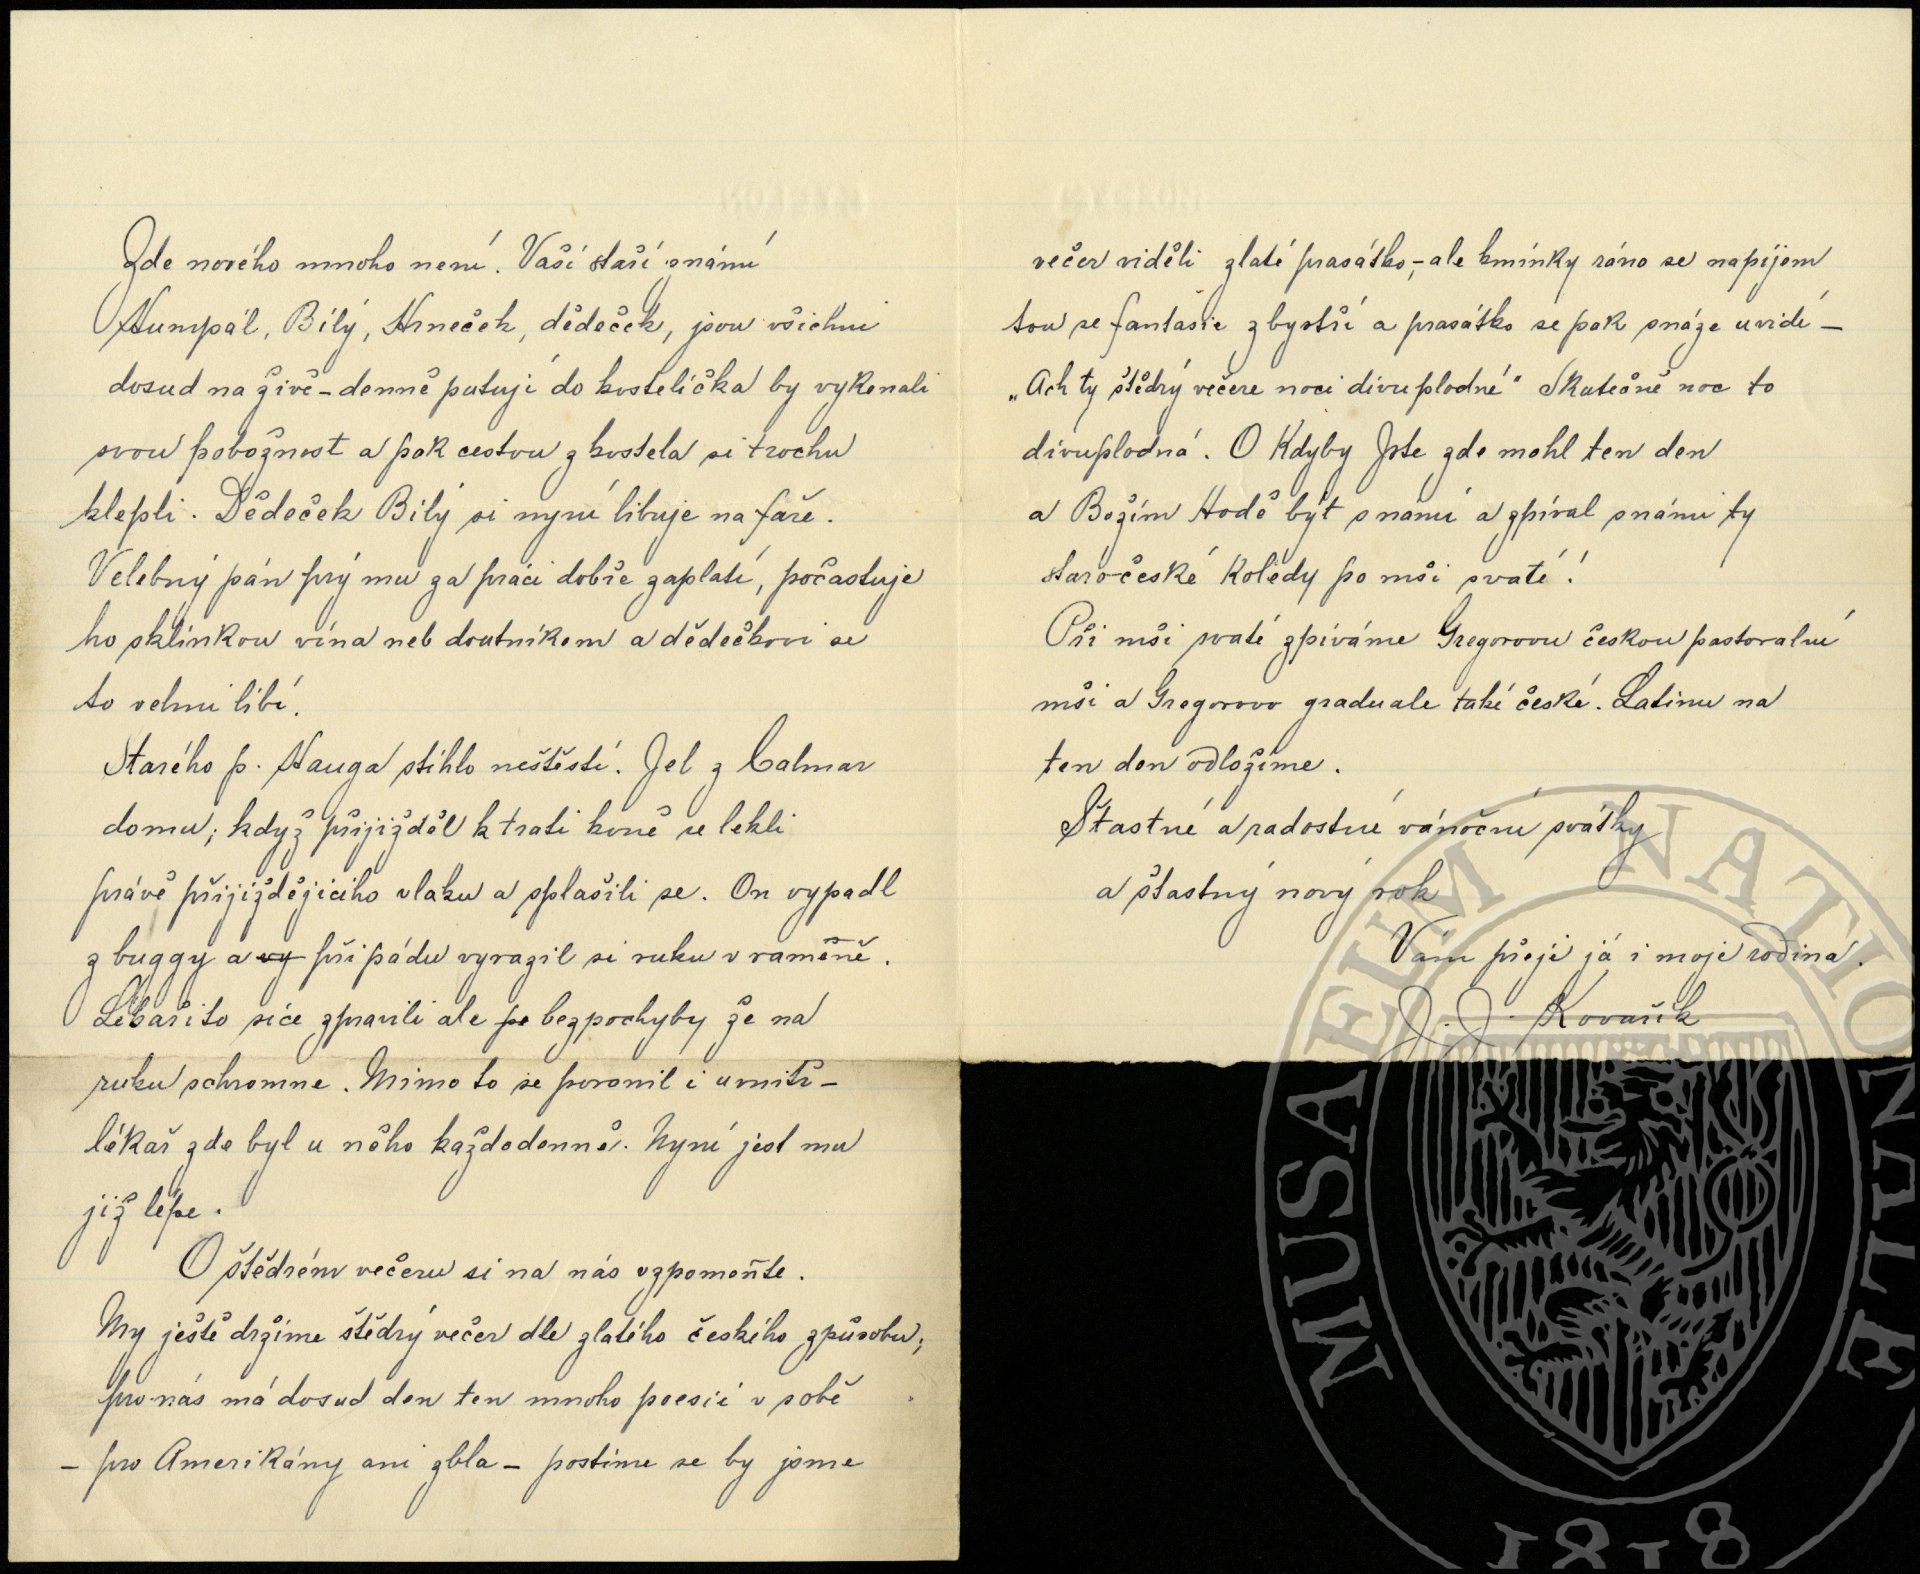 Zde nového mnoho není. Vaší staří známí
Humpál, Bílý, Hrneček, dědeček, jsou všichni
dosud na živě – denně putují do kostelíčka by vykonali
svou pobožnost a pak cestou z kostela si trochu
klepli. Dědeček Bílý si nyní libuje na faře.
Velebný pán prý mu za práci dobře zaplatí, počastuje
ho sklínkou vína neb doutníkem a dědečkovi se
to velmi líbí.
Starého p. Hauga stihlo neštěstí. Jel z Calmar
domu; když přijížděl k trati koně se lekli
právě přijíždějícího vlaku a splašili se. On vypadl
z buggy a vy při pádu vyrazil si ruku v raměně.
Lékaři to sice zpravili ale pe bezpochyby že na
ruku schromne. Mimo to se poranil i umitř –
lékař zde byl u něho každodenně. Nyní jest mu
již lépe.
O štědrém večeru si na nás vzpomeňte.
My ještě držíme štědrý večer dle zlatého českého způsobu;
pro nás má dosud den ten mnoho poesií v sobě
– pro Amerikány ani zbla – postíme se by jsme
večer viděli zlaté prasátko, – ale kmínky ráno se napijem
tou se fantasie zbystří a prasátko se pak snáze uvidí –
„Ach ty štědrý večere noci divuplodné" Skutečně noc to
divuplodná. O Kdyby Jste zde mohl ten den
a Božím Hodě být s námi a zpíval s námi ty
staro-české Koledy po mši svaté!
Při mši svaté zpíváme Gregorovu českou pastoralní
mši a Gregorovo graduale také české. Latinu na
ten den odložíme.
Šťastné a radostné vánoční svátky
a šťastný nový rok
Vám přeji já i moje rodina.
J. J. Kovařík
MUSAEUM NATIONALE
1818